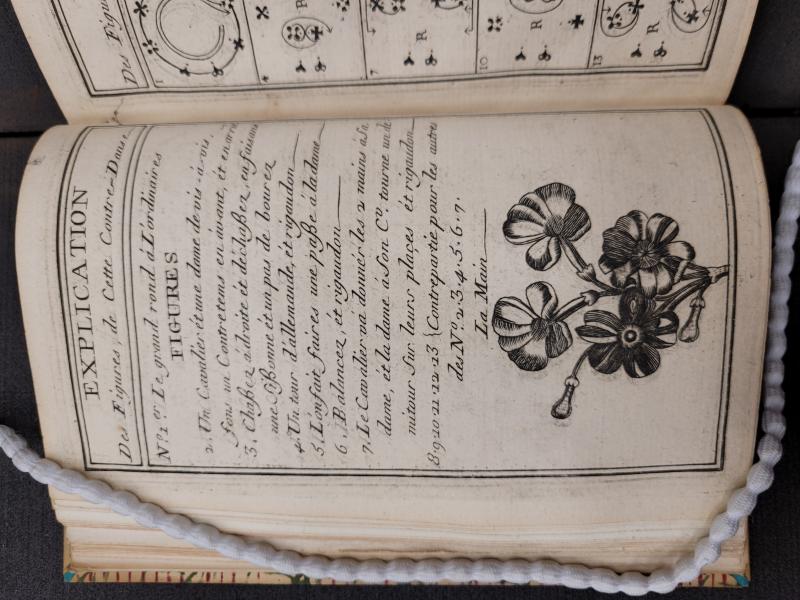 EXPLICATION
Des Figures, de Cette Contre-Danse
N.º1er Le grand rond à L'ordinaires
FIGURES
2. Un Cavalier et une dame de vis-à-vis,
font un Contretems en avant, et en arre
3. Chaßez à droite et déchaßez, en faisant
une Sißonne et un pas de bourez
4. Un tour d'allemande, et rigaudon
5. L'on fait faires une paße à la dame
6. Balancez, et rigaudon
7. Le Cavalier va donner les 2 mains à sa
dame, et la dame à son Cer. tourne un de
mitour Sur leurs places et rigaudon
8. 9. 10. 11. 12. 13 {Contrepartie pour les autres
de Nº 2. 3. 4. 5. 6. 7.
La Main
Des Figu
1
4
R
7
R
10
R
13
R